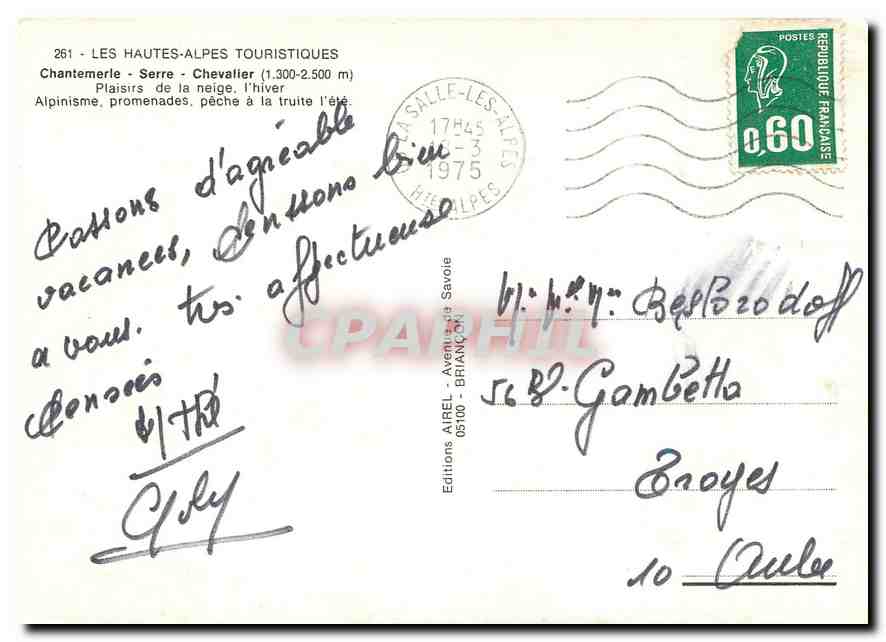 261 - LES HAUTES-ALPES TOURISTIQUES
Chantemerle - Serre - Chevalier (1.300-2.500 m)
Plaisirs de la neige, l'hiver
Alpinisme, promenades, pêche à la truite l'été.
LA SALLE-LES-ALPES
17H45
-3
1975
Hte ALPES
POSTES
REPUBLIQUE FRANÇAISE
0,60
Passons d'agréable
vacances, Penssons bien
a vous. très affectueuse
Pensées
Editions AIREL - Avenue de Savoie
05100 - BRIANÇON
CPAPHIL
Besborodoff
56 Bd. Gambetta
Troyes
10 Aube